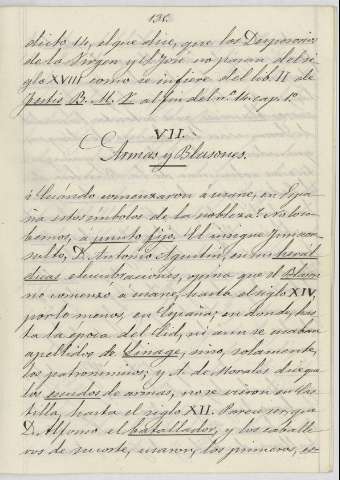 131.
dicto 14, el que dice, que los Desposorios
de la Virgen y S. José no pasan del si-
glo XVIII como se infiere del lib. II de
Festis B. M. V. al fin del n.º 14 cap. 1.º
VII.
Armas y Blasones.
¿Cuándo comenzaron á usarse, en Espa-
ña estos símbolos de la nobleza? No lo sa-
bemos, á punto fijo. El insigne Juriscon-
sulto, D. Antonio Agustin, en sus heral-
dicas elucubraciones, opina que el Blason
no comenzó á usarse, hasta el siglo XIV,
por lo menos, en España; en donde, has-
ta la época del Cid, ni aun se usaban
apellidos de Linage, sino, solamente,
los patronímicos; y A. de Morales dice que
los escudos de armas, no se vieron en Cas-
tilla, hasta el siglo XII. Parece ser, que
D. Alfonso el batallador, y los caballe-
ros de su corte, usaron, los primeros, es-